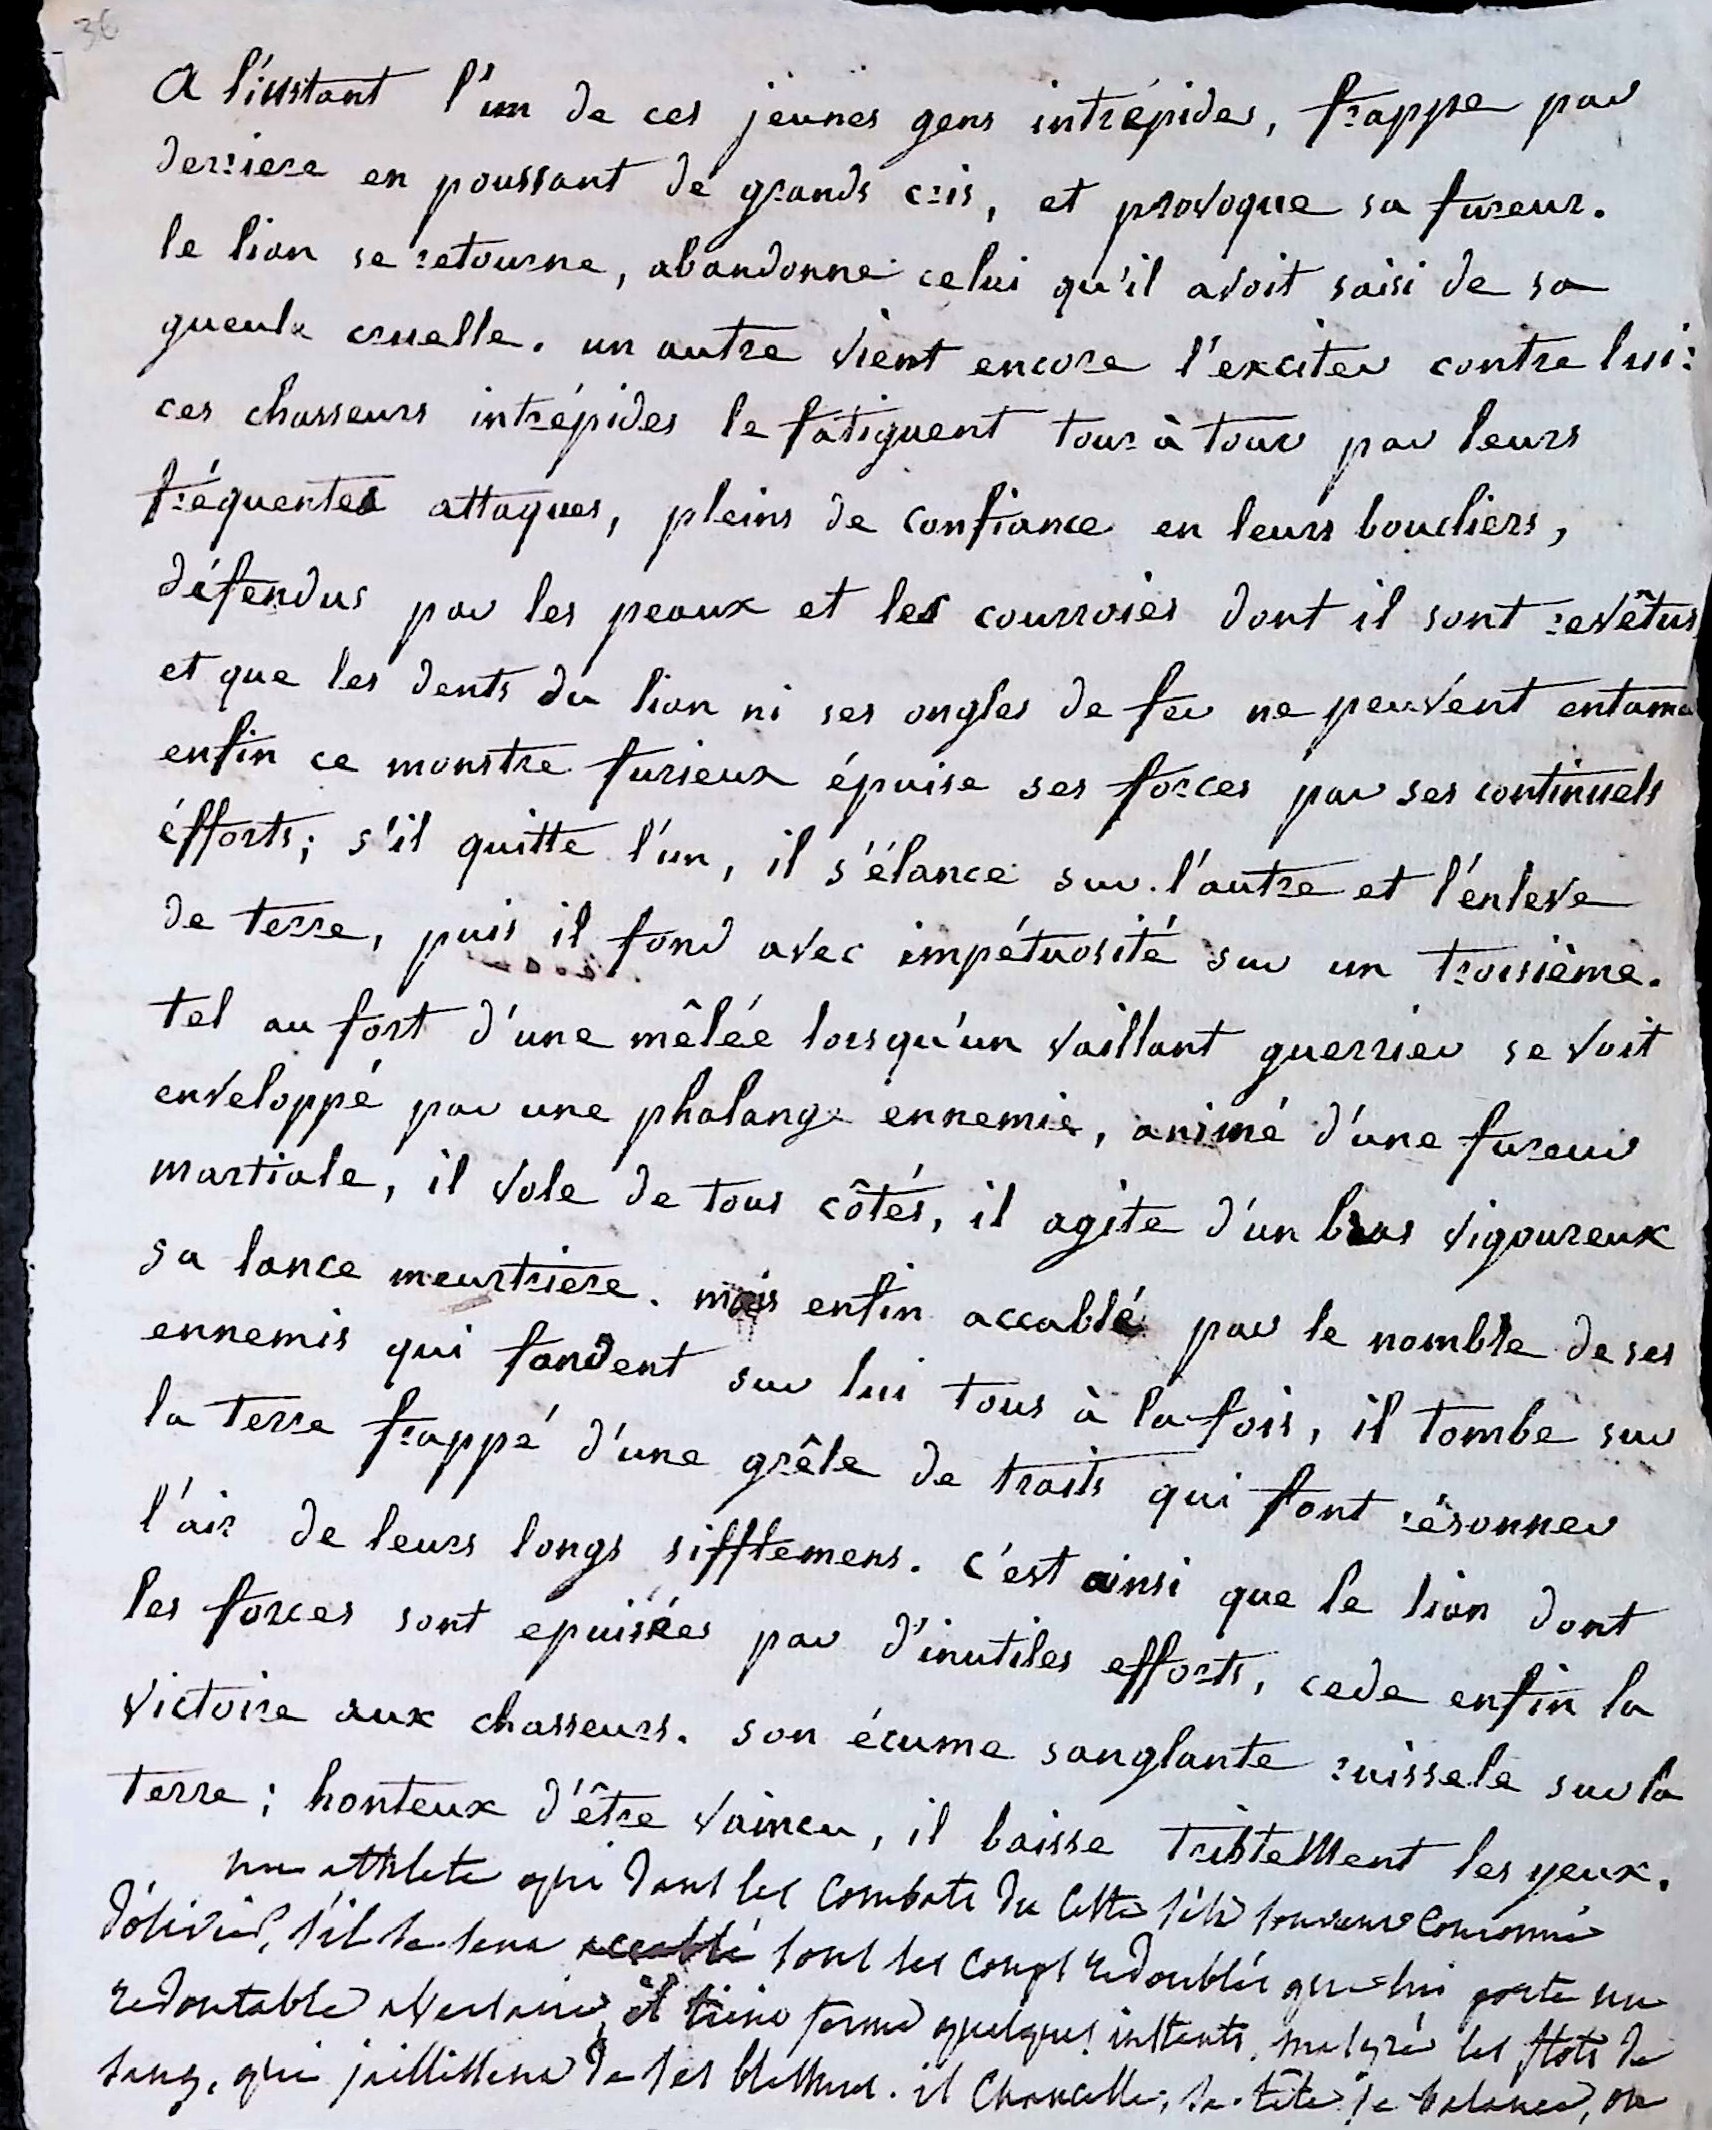 36
A l'instant l'un de ces jeunes gens intrépides, frappe par
derriere en poussant de grands cris, et provoque sa fureur.
le lion se retourne, abandonne celui qu'il avoit saisi de sa
gueule cruelle. un autre vient encore l'exciter contre lui:
ces chasseurs intrépides le fatiguent tour à tour par leurs
fréquentes attaques, pleins de confiance en leurs boucliers,
défendus par les peaux et les courroies dont il sont revêtus
et que les dents du lion ni ses ongles de fer ne peuvent entame
enfin ce monstre furieux épuise ses forces par ses continuels
éfforts; s'il quitte l'un, il s'élance sur l'autre et l'énleve
de terre, puis il fond avec impétuosité sur un troisième.
tel au fort d'une mêlée lorsqu'un vaillant guerrier se voit
enveloppé par une phalange ennemie, animé d'une fureur
martiale, il vole de tous côtés, il agite d'un bras vigoureux
sa lance meurtriere. mais enfin accablé par le nombre de ses
ennemis qui fondent sur lui tous à la fois, il tombe sur
la terre frappé d'une grêle de traits qui font résonner
l'air de leurs longs sifflemens. c'est ainsi que le lion dont
les forces sont epuisées par d'inutiles efforts, cede enfin la
victoire aux chasseurs. son écume sanglante ruissele sur la
terre; honteux d'être vaincu, il baisse tristement les yeux.
un athlete qui dans les combats du Ceste s'est souvent couronné
d'olivier, s'il se sent accablé sous les coups redoublés que lui porte un
redoutable adversaire, il tient ferme quelques instants, malgré les flots de
sang, qui jaillissent de ses blessures. il chancelle, sa tête se balance, on